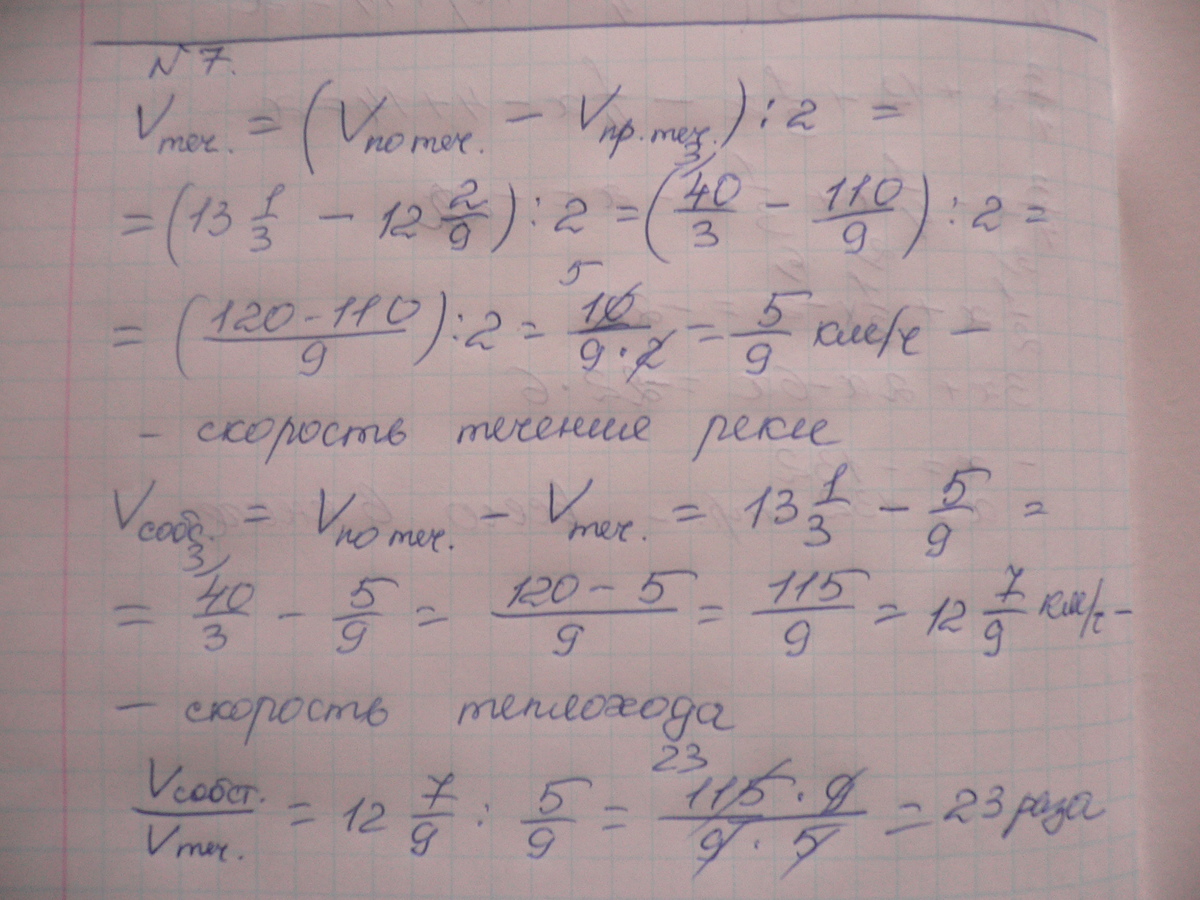 №7.
Vтеч. = (Vпо теч. − Vпр. теч.) : 2 =
= (13 1/3 − 12 2/9) : 2 = (40/3 − 110/9) : 2 =
= ((120 − 110)/9) : 2 = 10/(9 · 2) = 5/9 км/ч −
− скорость течения реки
Vсобс. = Vпо теч. − Vтеч. = 13 1/3 − 5/9 =
= 40/3 − 5/9 = (120 − 5)/9 = 115/9 = 12 7/9 км/ч −
− скорость теплохода
Vсобст./Vтеч. = 12 7/9 : 5/9 = (115 · 9)/(9 · 5) = 23 раза